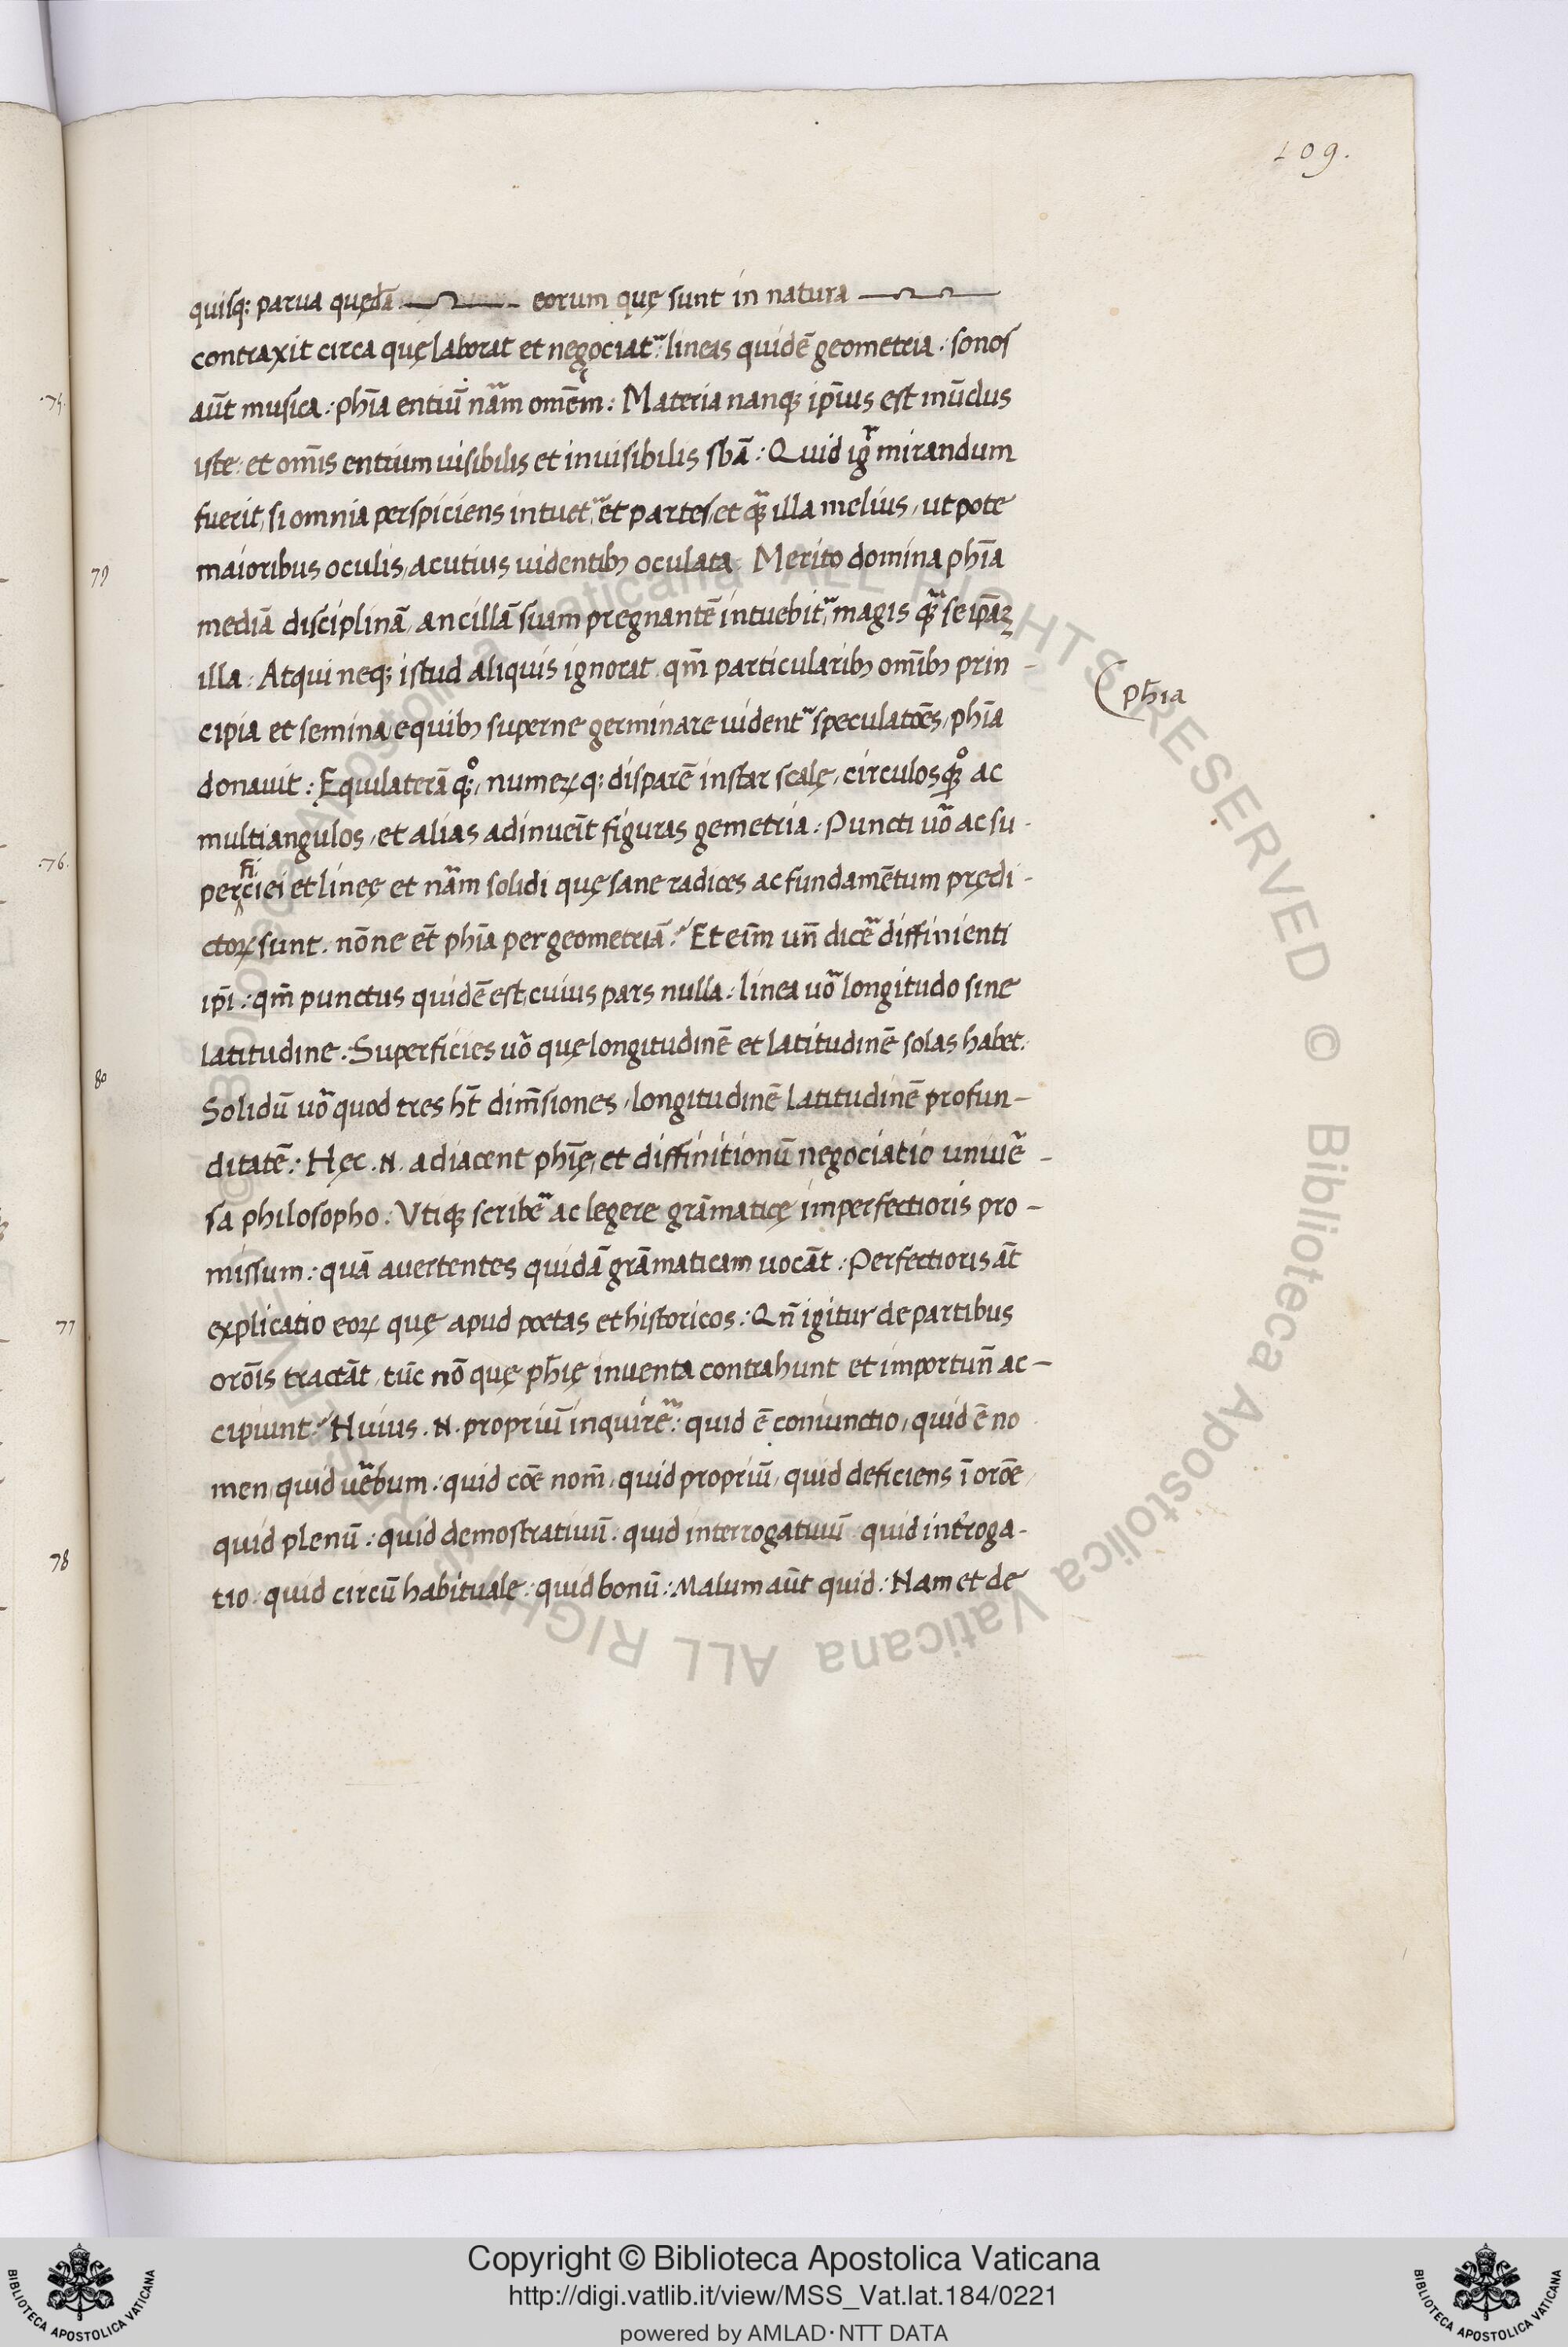 109.
quisq; parua quędā eorum quę sunt in natura
contraxit circa quę laborat et negociatᷓ: lineas quidē geometria. sonos
aūt musica: phīa entiū nāᷓm omēm: Materia nanq; ip̄ius est mūdus
iste: et om̄is entium uisibilis et inuisibilis sbā: Quid igr̄ mirandum
fuerit, si omnia perspiciens intuetᷓ, et partes, et qᷓ illa melius, ut pote
maioribus oculis, acutius uidentibꝫ oculata. Merito domina phīa
mediā disciplinā, ancillā suam pregnantē intuebitᷓ, magis qᷓ se ip̄aꝫ
illa. Atqui neq; istud aliquis ignorat. qm̄ particularibꝫ om̄ibꝫ prin-
cipia et semina, e quibꝫ superne germinare uidentᷓ speculatōēs, phīa
phīa
donauit: Equilaterā q;°, numeꝝ q; disparē instar scalę, circulosq;° ac
multiangulos, et alias adinuēit figuras gemetria: Puncti uōᷓ ac su-
perficiei et lineę et nāᷓm solidi quę sane radices ac fundamētum prędi-
ctoꝝ sunt. nōne ēt phīa per geometriā? Et eīm un̄ dicēᷓ diffinienti
ip̄i: qm̄ punctus quidē est, cuius pars nulla: linea uōᷓ longitudo sine
latitudine. Superficies uō quę longitudinē et latitudinē solas habet:
Solidū uōᷓ quod tres ht̄ dim̄siones, longitudinē latitudinē profun-
ditatē: Hęc .N. adiacent phīę, et diffinitionū negociatio uniuē-
sa philosopho: Vtiq; scribēᷓ ac legere grāmaticę imperfectioris pro-
missum: quā auertentes quidā grāmaticam uocāt: Perfectioris āt
explicatio eoꝝ quę apud poetas et historicos: Qn̄ igitur de partibus
orōis tractāt, tūc nō quę phīę inuenta contrahunt et importun̄ ac-
cipiunt? Huius .N. propriū inquirēᷓ: quid ē coniunctio, quid ē no
men, quid uēᷓbum: quid cōe nom̄, quid propriū, quid deficiens ī orōe,
quid plenū: quid demostratiuū: quid interrogatiuū quid int̄roga-
tio: quid circū habituale: quid bonū: Malum aūt quid: Nam et de
.75.
79
.76.
80
77
78
Copyright © Biblioteca Apostolica Vaticana
http://digi.vatlib.it/view/MSS_Vat.lat.184/0221
powered by AMLAD·NTT DATA
BIBLIOTECA APOSTOLICA VATICANA
BIBLIOTECA APOSTOLICA VATICANA
© Biblioteca Apostolica Vaticana ALL RIGHTS RESERVED © Biblioteca Apostolica Vaticana ALL RIGHTS RESERVED